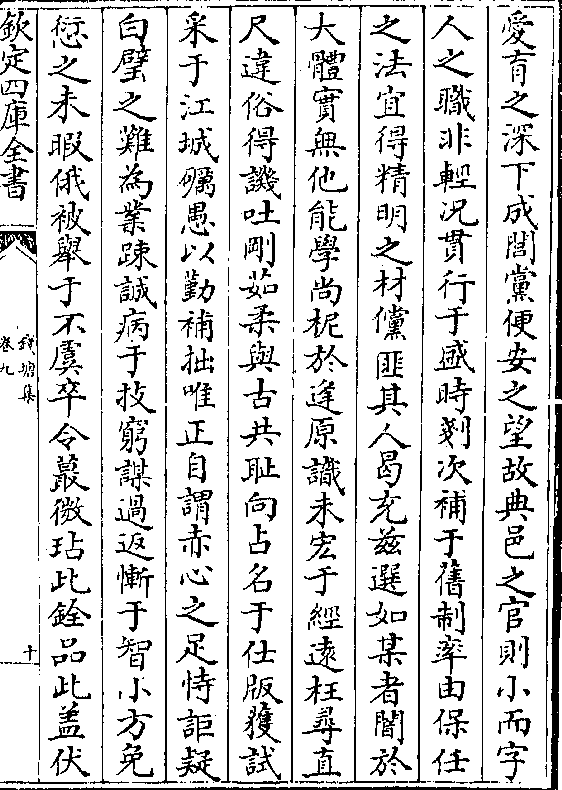 愛育之深下成閭黨便安之望故典邑之官則小而字
人之職非輕况貫行于盛時剡次補于舊制率由保任
之法宜得精明之材儻匪其人曷充兹選如某者闇於
大體實無他能學尚柅於逢原識未宏于經遠枉尋直
尺違俗得譏吐剛茹柔與古共耻向占名于仕版獲試
采于江城礪愚以勤補拙唯正自謂赤心之足恃詎疑
白璧之難為業踈誠病于技窮謀過返慚于智小方免
愆之未暇俄被舉于不虞卒令蕞微玷此銓品此盖伏
欽定四庫全書
錢塘集
卷九
十